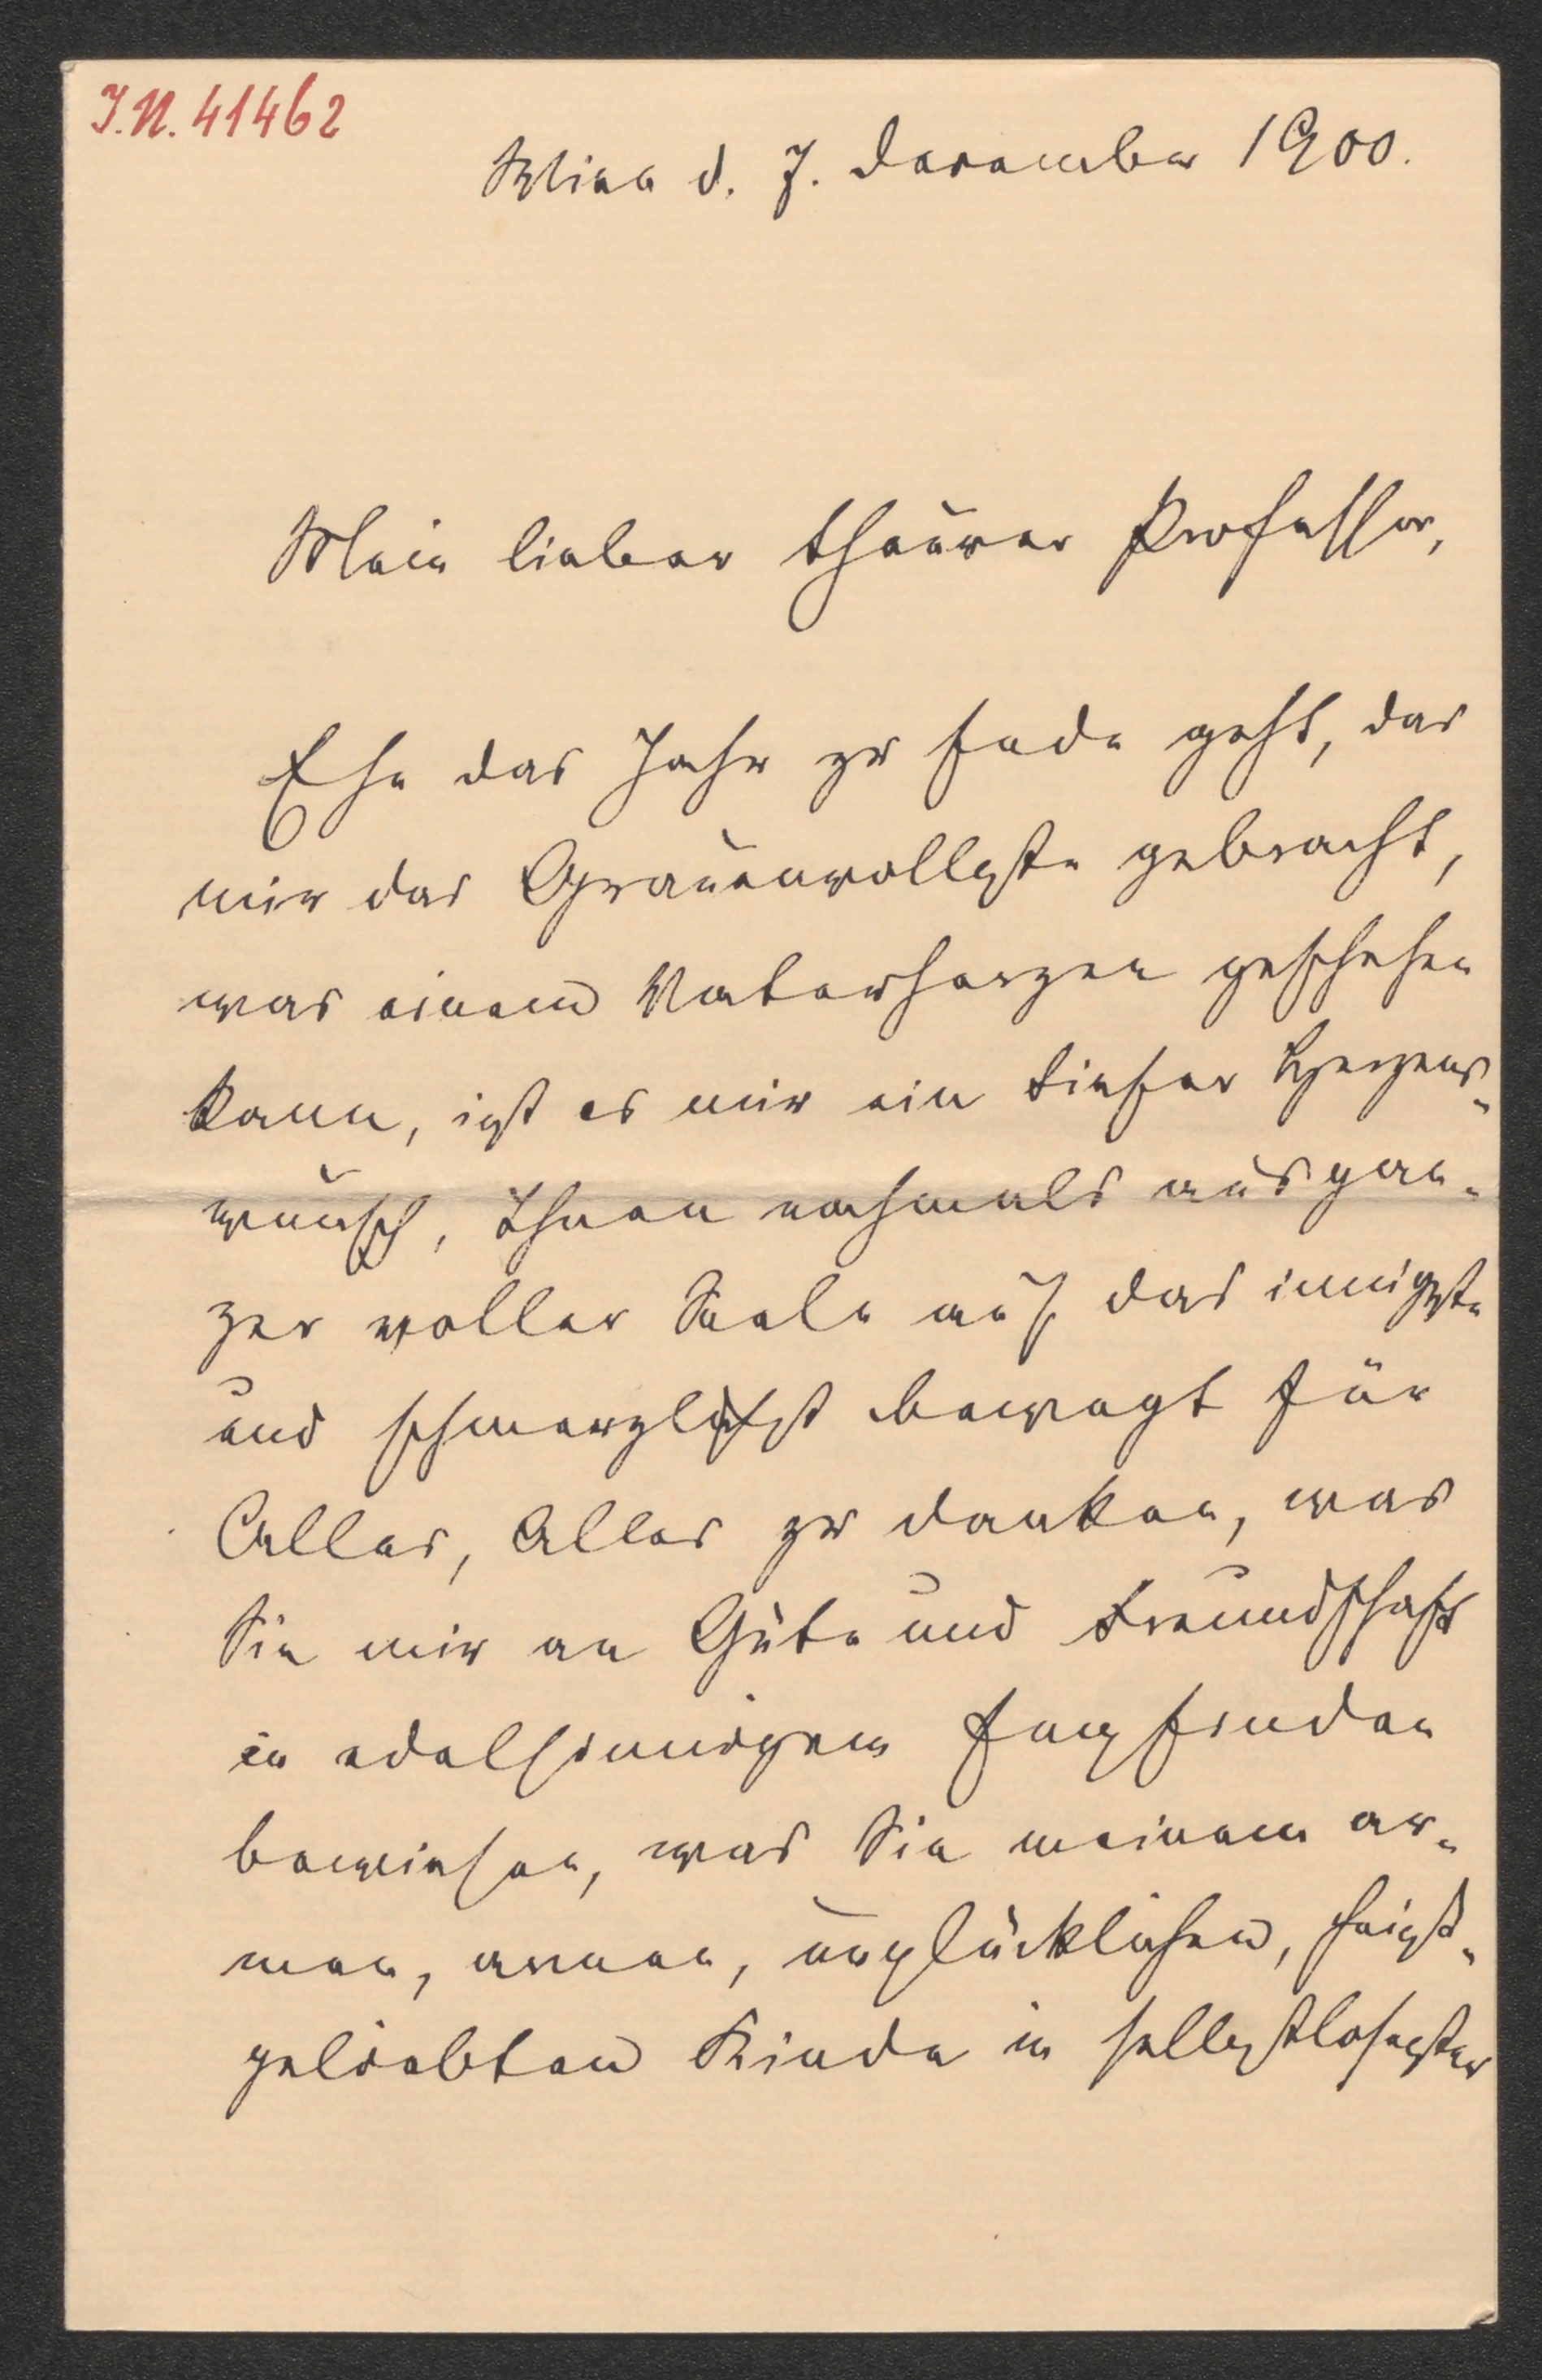 I.N. 41462
Wien d. 7. December 1900.
Mein lieber theurer Professor,
Ehe das Jahr zu Ende geht, das
mir das Grauenvollste gebracht,
was einem Vaterherzen geschehen
kann, ist es mir ein tiefer Herzens-
wunsch, Ihnen nochmals aus gan-
zer voller Seele auf das innigste
und schmerzlichst bewegt für
Alles, Alles zu danken, was
Sie mir an Güte und Freundschaft
in edelsinnigem Empfinden
bewiesen, was Sie meinem ar-
men, armen, unglücklichen, heißt-
geliebten Kinde in selbstlosester